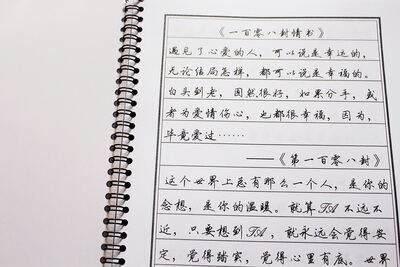 《一百零八封情书》
遇见了心爱的人，可以说是幸运的，
无论结局怎样，都可以说是幸福的。
白头到老，固然很好，如果分手，或
者为爱情伤心，也都很幸福，因为，
毕竟爱过……
——《第一百零八封》
这个世界上总有那么一个人，是你的
念想，是你的温暖。就算TA不远不
近，只要想到TA，就永远会觉得安
定，觉得踏实，觉得心里有底。世界